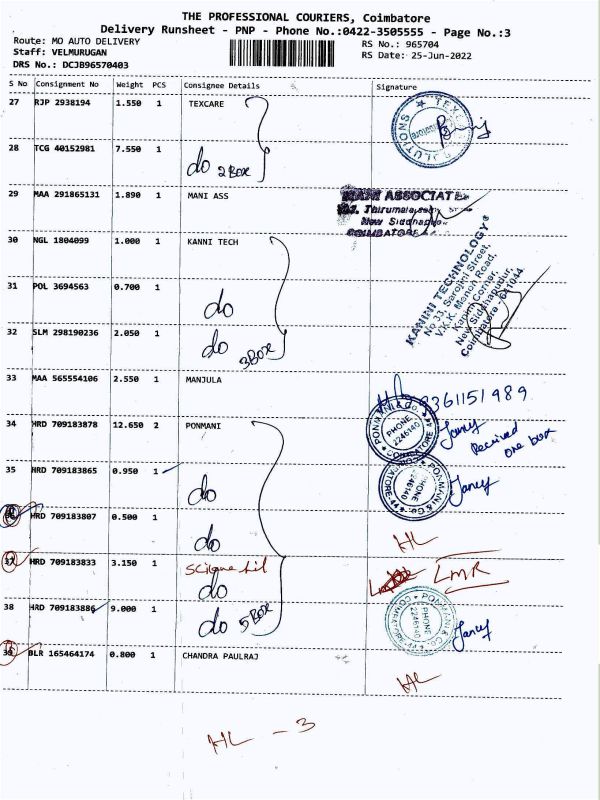 THE PROFESSIONAL COURIERS, Coimbatore
Delivery Runsheet - PNP - Phone No.:0422-3505555 - Page No.:3
Route: MO AUTO DELIVERY
RS No.: 965704
Staff: VELMURUGAN
RS Date: 25-Jun-2022
DRS No.: DCJB96570403
S No Consignment No Weight PCS Consignee Details Signature
27 RJP 2938194 1.550 1 TEXCARE
28 TCG 40152981 7.550 1 do 2 Box
29 MAA 291865131 1.890 1 MANI ASS
MANI ASSOCIATE
New Siddhapu
COIMBATORE
30 NGL 1804099 1.000 1 KANNI TECH
31 POL 3694563 0.700 1 do
KANINI TECHNOLOGY
No 33, Sarojini Street,
V.K.K. Menon Road,
Kanini Corner,
New Siddhapudur,
Coimbatore - 641044
32 SLM 298190236 2.050 1 do 3 Box
33 MAA 565554106 2.550 1 MANJULA
9361151989
34 HRD 709183878 12.650 2 PONMANI
PONMANI & Co. COIMBATORE 44 PHONE 2246140
Jancy Received
one box
35 HRD 709183865 0.950 1 do
PONMANI & Co. COIMBATORE 44 PHONE 2246140
Jancy
36 HRD 709183807 0.500 1 do HL
37 HRD 709183833 3.150 1 do LMR
38 HRD 709183886 9.000 1 do 5 Box
PONMANI & Co. COIMBATORE PHONE 2246140
Jancy
39 BLR 165464174 0.800 1 CHANDRA PAULRAJ HL
HL - 3